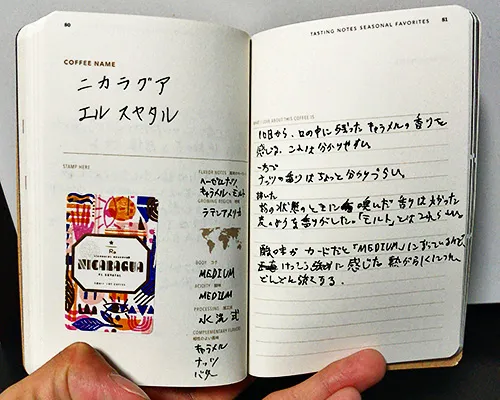 80
COFFEE NAME
ニカラグア
エル スヤタル
STAMP HERE
FLAVOR NOTES
ヘーゼルナッツ,
キャラメル, モルト
GROWING REGION
ラテンアメリカ
BODY コク
MEDIUM
ACIDITY 酸味
MEDIUM
PROCESSING
水洗式
COMPLEMENTARY FLAVORS
相性のよい風味
キャラメル
ナッツ
バター
NICARAGUA
TASTING NOTES SEASONAL FAVORITES
81
WHAT I LOVE ABOUT THIS COFFEE IS
口の中に キャラメルの香りを
感じる。これは分かりやすい。
一方で
ナッツの香りはちょっと分かりづらい。
挽いた
粉の状態のときに 嗅いだ香りは
ような香りがした。「モルト」とはこれらしい
酸味が カードだと「MEDIUM」に
けっこう強めに感じた 熱がらくにつれ
どんどん強くする。